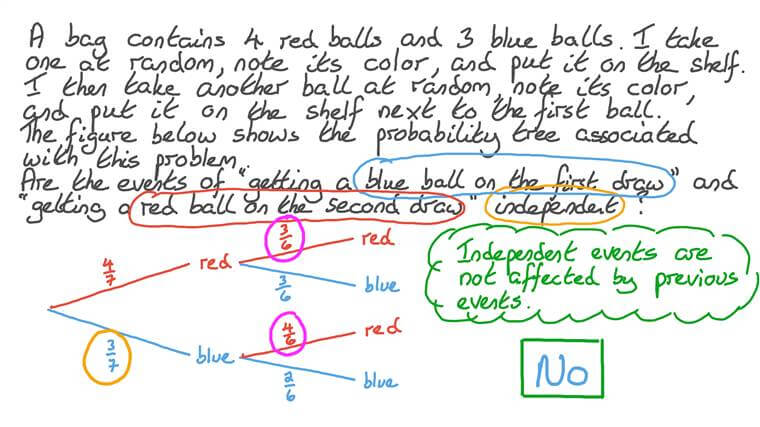 A bag contains 4 red balls and 3 blue balls. I take
one at random, note its color, and put it on the shelf.
I then take another ball at random, note its color,
and put it on the shelf next to the first ball.
The figure below shows the probability tree associated
with this problem.
Are the events of "getting a blue ball on the first draw" and
"getting a red ball on the second draw" independent?
4/7
red
3/6
red
3/6
blue
3/7
blue
4/6
red
2/6
blue
Independent events are
not affected by previous
events.
No